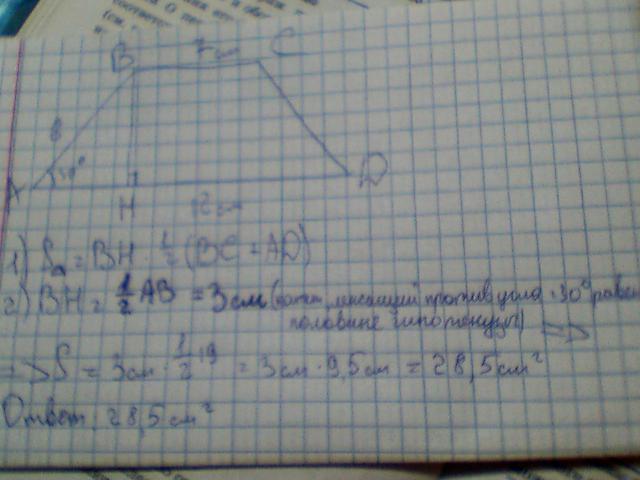 B 7 см C
8
30°
A D
H 12 см
1) S = BH · 1/2 (BC = AD)
2) BH = 1/2 AB = 3 см (катет, лежащий против угла 30° равен
половине гипотенузы) =>
=> S = 3 см · 1/2 · 19 = 3 см · 9,5 см = 28,5 см²
Ответ: 28,5 см²